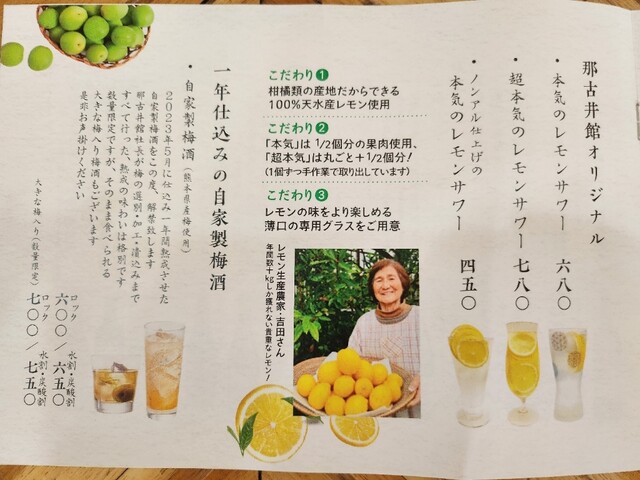 那古井館オリジナル
・本気のレモンサワー 六八〇
・超本気のレモンサワー 七八〇
・ノンアル仕上げの
本気のレモンサワー 四五〇
こだわり❶
柑橘類の産地だからできる
100%天水産レモン使用
こだわり❷
「本気」は1/2個分の果肉使用、
「超本気」は丸ごと+1/2個分!
(1個ずつ手作業で取り出しています)
こだわり❸
レモンの味をより楽しめる
薄口の専用グラスをご用意
レモン生産農家・吉田さん
年間数十kgしか獲れない貴重なレモン!
一年仕込みの自家製梅酒
・自家製梅酒(熊本県産梅使用)
2023年5月に仕込み一年間熟成させた
自家製梅酒をこの度、解禁致します
那古井館社長が梅の選別・加工・漬込みまで
すべて行った、熟成の味わいは格別です
数量限定ですが、そのまま食べられる
大きな梅入り梅酒もございます
是非お声掛けください
ロック 水割・炭酸割
六〇〇/六五〇
大きな梅入り(数量限定)
ロック 水割・炭酸割
七〇〇/七五〇